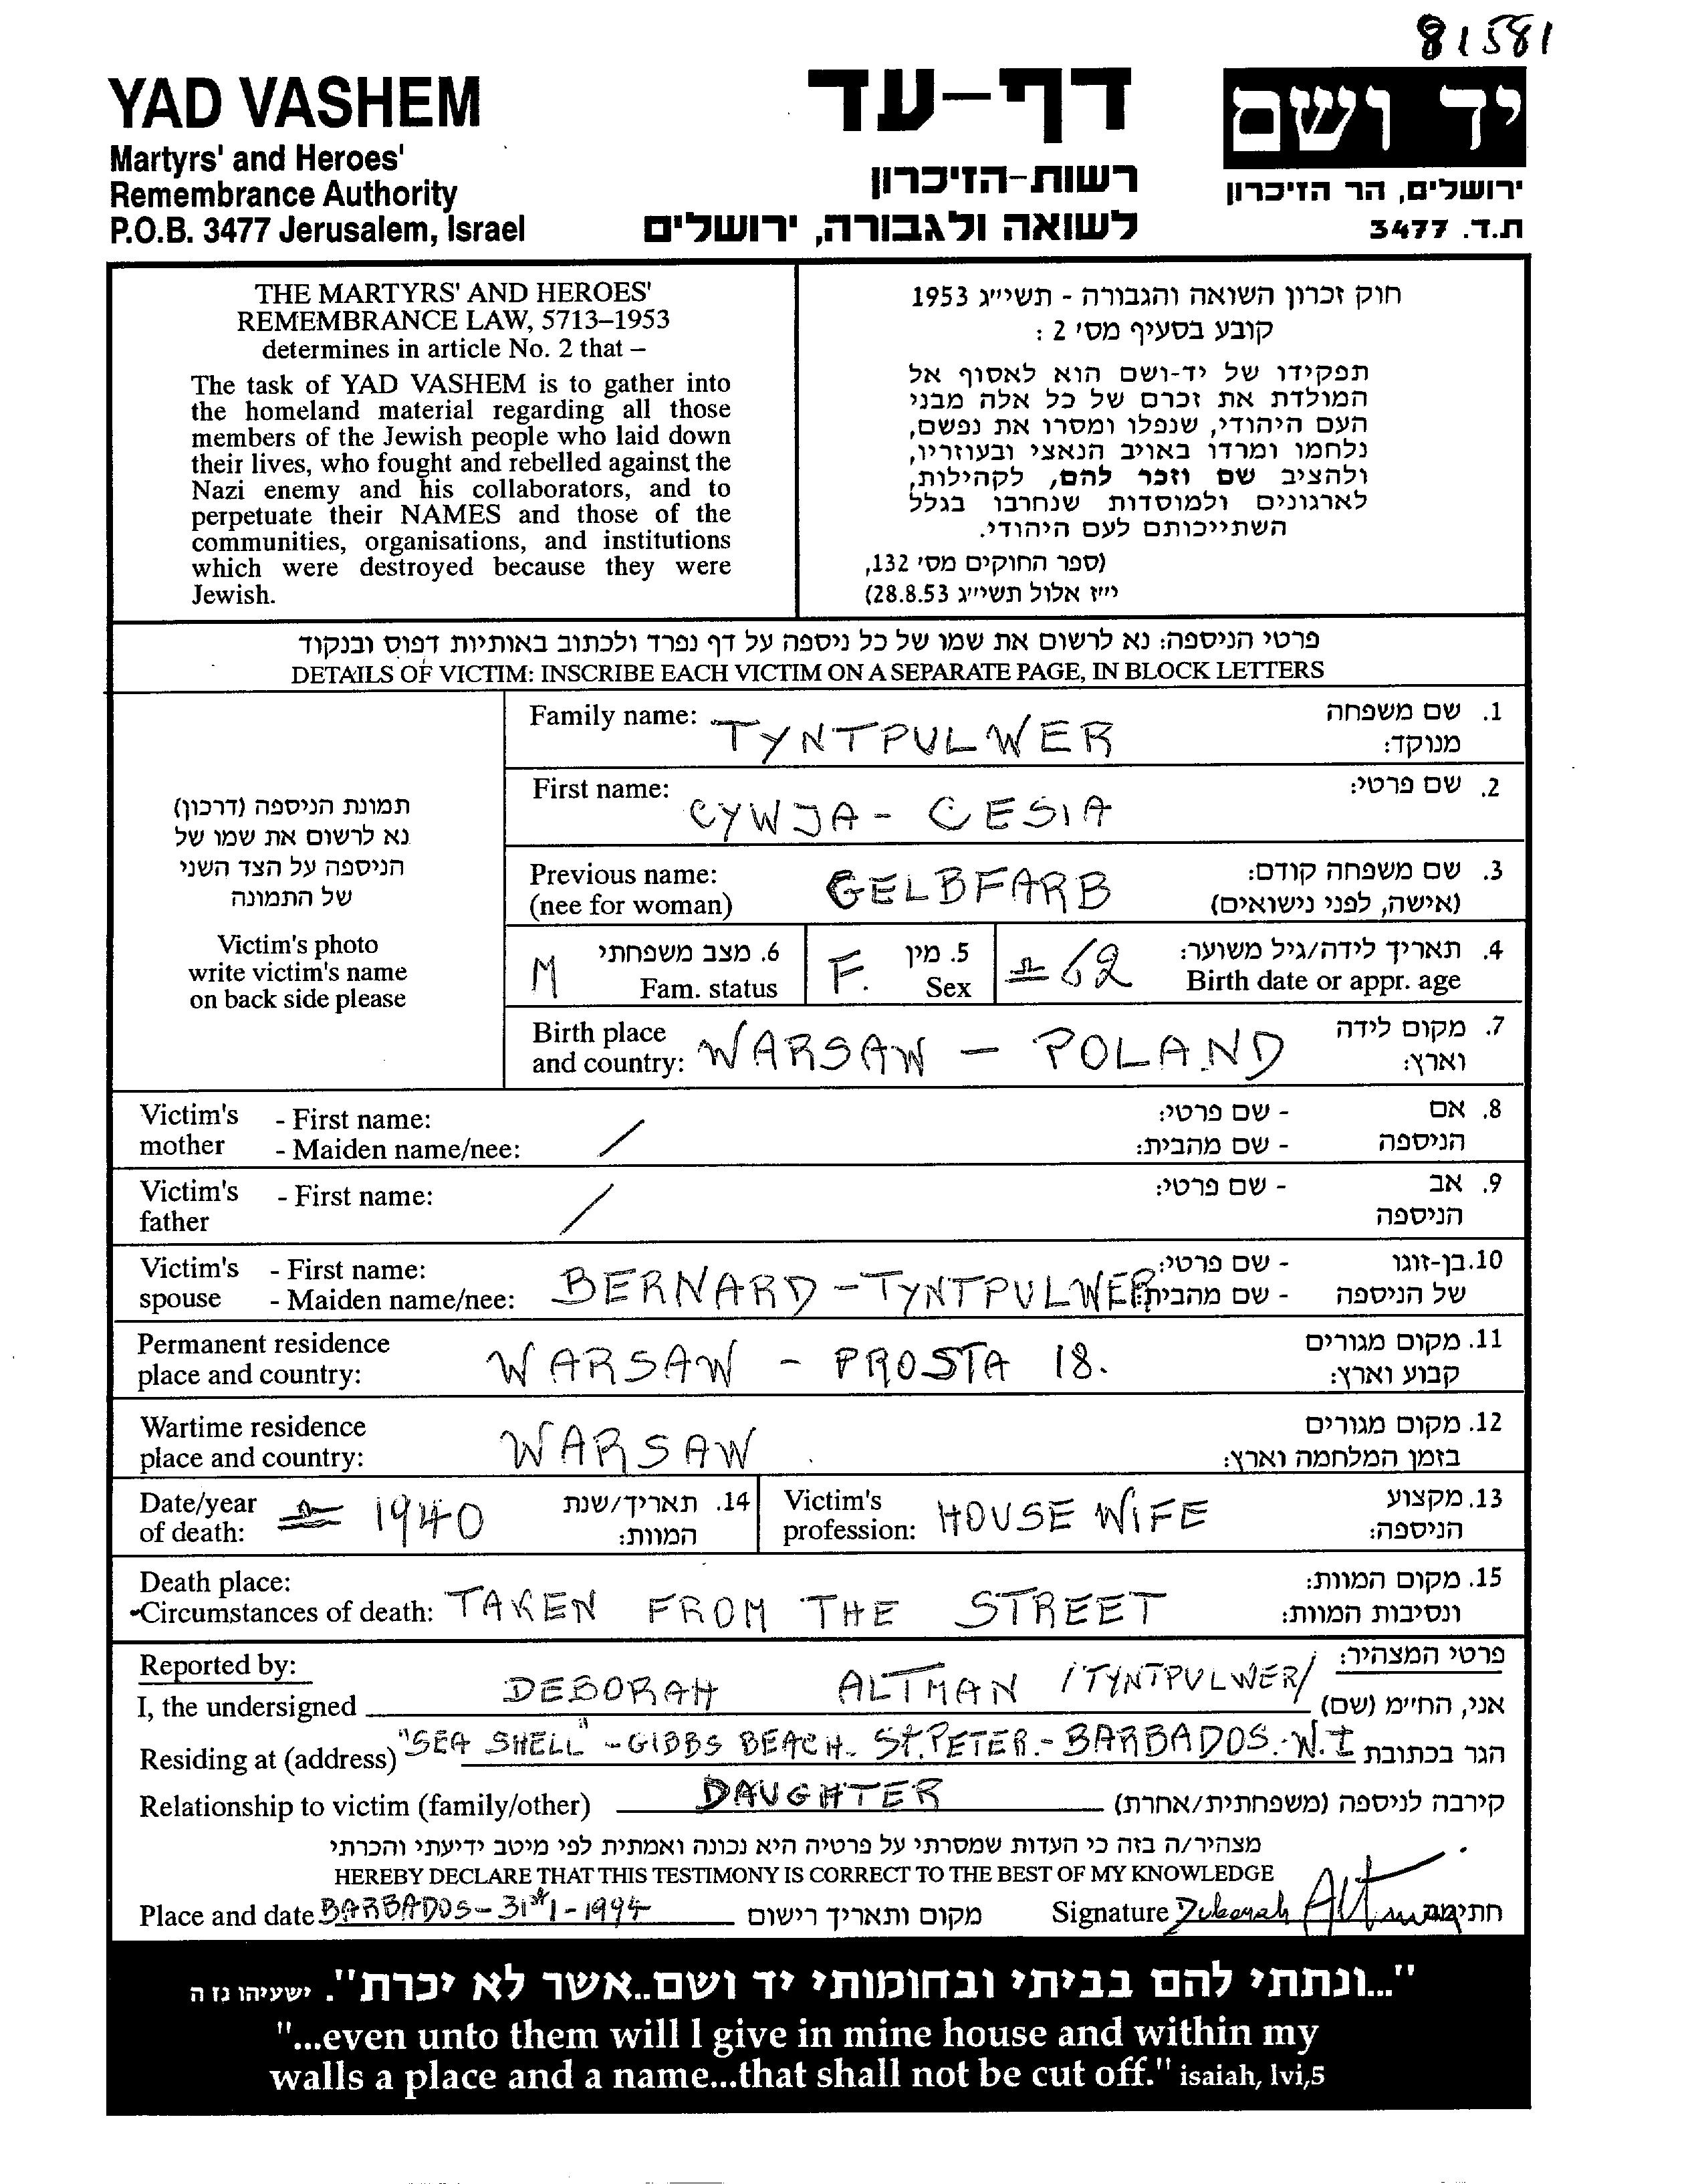 81581
YAD VASHEM
Martyrs' and Heroes'
Remembrance Authority
P.O.B. 3477 Jerusalem, Israel
דף-עד
רשות-הזיכרון
לשואה ולגבורה, ירושלים
יד ושם
ירושלים, הר הזיכרון
ת.ד. 3477
THE MARTYRS' AND HEROES'
REMEMBRANCE LAW, 5713–1953
determines in article No. 2 that –
The task of YAD VASHEM is to gather into
the homeland material regarding all those
members of the Jewish people who laid down
their lives, who fought and rebelled against the
Nazi enemy and his collaborators, and to
perpetuate their NAMES and those of the
communities, organisations, and institutions
which were destroyed because they were
Jewish.
חוק זכרון השואה והגבורה - תשי״ג 1953
קובע בסעיף מס' 2 :
תפקידו של יד-ושם הוא לאסוף אל
המולדת את זכרם של כל אלה מבני
העם היהודי, שנפלו ומסרו את נפשם,
נלחמו ומרדו באויב הנאצי ובעוזריו,
ולהציב שם וזכר להם, לקהילות,
לארגונים ולמוסדות שנחרבו בגלל
השתייכותם לעם היהודי.
(ספר החוקים מס' 132,
י״ז אלול תשי״ג 28.8.53)
פרטי הניספה: נא לרשום את שמו של כל ניספה על דף נפרד ולכתוב באותיות דפוס ובנקוד
DETAILS OF VICTIM: INSCRIBE EACH VICTIM ON A SEPARATE PAGE, IN BLOCK LETTERS
תמונת הניספה (דרכון)
נא לרשום את שמו של
הניספה על הצד השני
של התמונה
Victim's photo
write victim's name
on back side please
Family name: TYNTPULWER 1. שם משפחה
מנוקד:
First name: CYWJA - CESIA 2. שם פרטי:
Previous name: GELBFARB 3. שם משפחה קודם:
(nee for woman) (אישה, לפני נישואים)
M 6. מצב משפחתי F. 5. מין ± 62 4. תאריך לידה/גיל משוער:
Fam. status Sex Birth date or appr. age
Birth place 7. מקום לידה
and country: WARSAW - POLAND וארץ:
Victim's - First name: / - שם פרטי: 8. אם
mother - Maiden name/nee: - שם מהבית: הניספה
Victim's - First name: / - שם פרטי: 9. אב
father הניספה
Victim's - First name: - שם פרטי: 10. בן-זוגו
spouse - Maiden name/nee: BERNARD - TYNTPULWER - שם מהבית: של הניספה
Permanent residence 11. מקום מגורים
place and country: WARSAW - PROSTA 18. קבוע וארץ:
Wartime residence 12. מקום מגורים
place and country: WARSAW בזמן המלחמה וארץ:
Date/year ± 1940 14. תאריך/שנת Victim's HOUSE WIFE 13. מקצוע
of death: המוות: profession: הניספה:
Death place: 15. מקום המוות:
Circumstances of death: TAKEN FROM THE STREET ונסיבות המוות:
Reported by: פרטי המצהיר:
I, the undersigned DEBORAH ALTMAN /TYNTPULWER/ אני, הח״מ (שם)
Residing at (address) "SEA SHELL" - GIBBS BEACH - St. PETER. - BARBADOS. - W.I הגר בכתובת
Relationship to victim (family/other) DAUGHTER קירבה לניספה (משפחתית/אחרת)
מצהיר/ה בזה כי העדות שמסרתי על פרטיה היא נכונה ואמתית לפי מיטב ידיעתי והכרתי
HEREBY DECLARE THAT THIS TESTIMONY IS CORRECT TO THE BEST OF MY KNOWLEDGE
Place and date BARBADOS - 31st 1 - 1994 מקום ותאריך רישום Signature Deborah Altman חתימה
"...ונתתי להם בביתי ובחומותי יד ושם..אשר לא יכרת". ישעיהו נז ה
"...even unto them will I give in mine house and within my
walls a place and a name...that shall not be cut off." isaiah, lvi,5